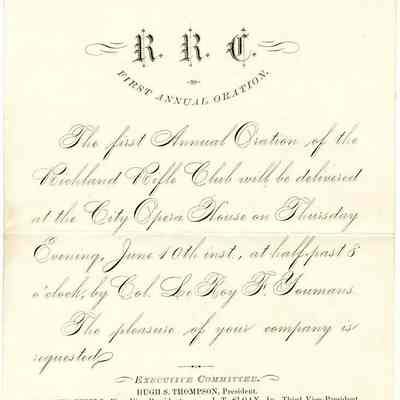 R. R. C.
FIRST ANNUAL ORATION.
The first Annual Oration of the
Richland Rifle Club will be delivered
at the City Opera House on Thursday
Evening, June 10th inst, at half past 8
o'clock, by Col. Le Roy F. Youmans.
The pleasure of your company is
requested
EXECUTIVE COMMITTEE.
HUGH S. THOMPSON, President.
SLOAN, Jr., Third Vice-President